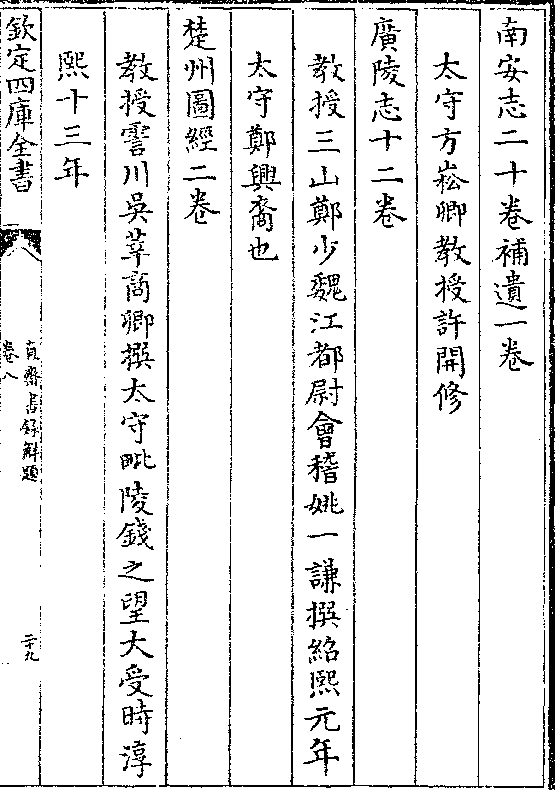 南安志二十卷補遺一卷
太守方崧卿教授許開修
廣陵志十二卷
教授三山鄭少魏江都尉會稽姚一謙撰紹熙元年
太守鄭興裔也
楚州圖經二卷
教授霅川吳莘商卿撰太守毗陵錢之望大受時淳
熙十三年
欽定四庫全書
直齋書錄解題
卷八
二十九